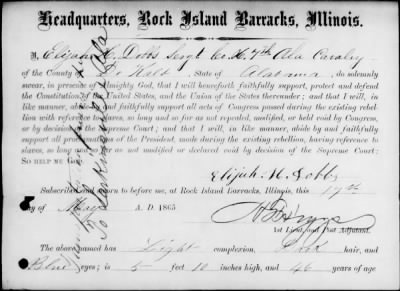 Headquarters, Rock Island Barracks, Illinois.
I, Elijah H. Dobbs Sergt Co. H. 7th Ala Cavalry
of the County of De Kalb, State of Alabama, do solemnly
swear, in presence of Almighty God, that I will henceforth faithfully support, protect and defend
the Constitution of the United States, and the Union of the States thereunder; and that I will, in
like manner, abide by and faithfully support all acts of Congress passed during the existing rebellion
with reference to slaves, so long and so far as not repealed, modified, or held void by Congress,
or by decision of the Supreme Court; and that I will, in like manner, abide by and faithfully
support all proclamations of the President, made during the existing rebellion, having reference
to slaves, so long and so far as not modified or declared void by decision of the Supreme Court:
So help me God.
Elijah H. Dobbs
Subscribed and sworn to before me, at Rock Island Barracks, Illinois, this 17th
day of May A. D. 1865
1st Lieut. and Post Adjutant.
The above named has Light complexion, Dark hair, and
Blue eyes; is 5 feet 10 inches high, and 46 years of age